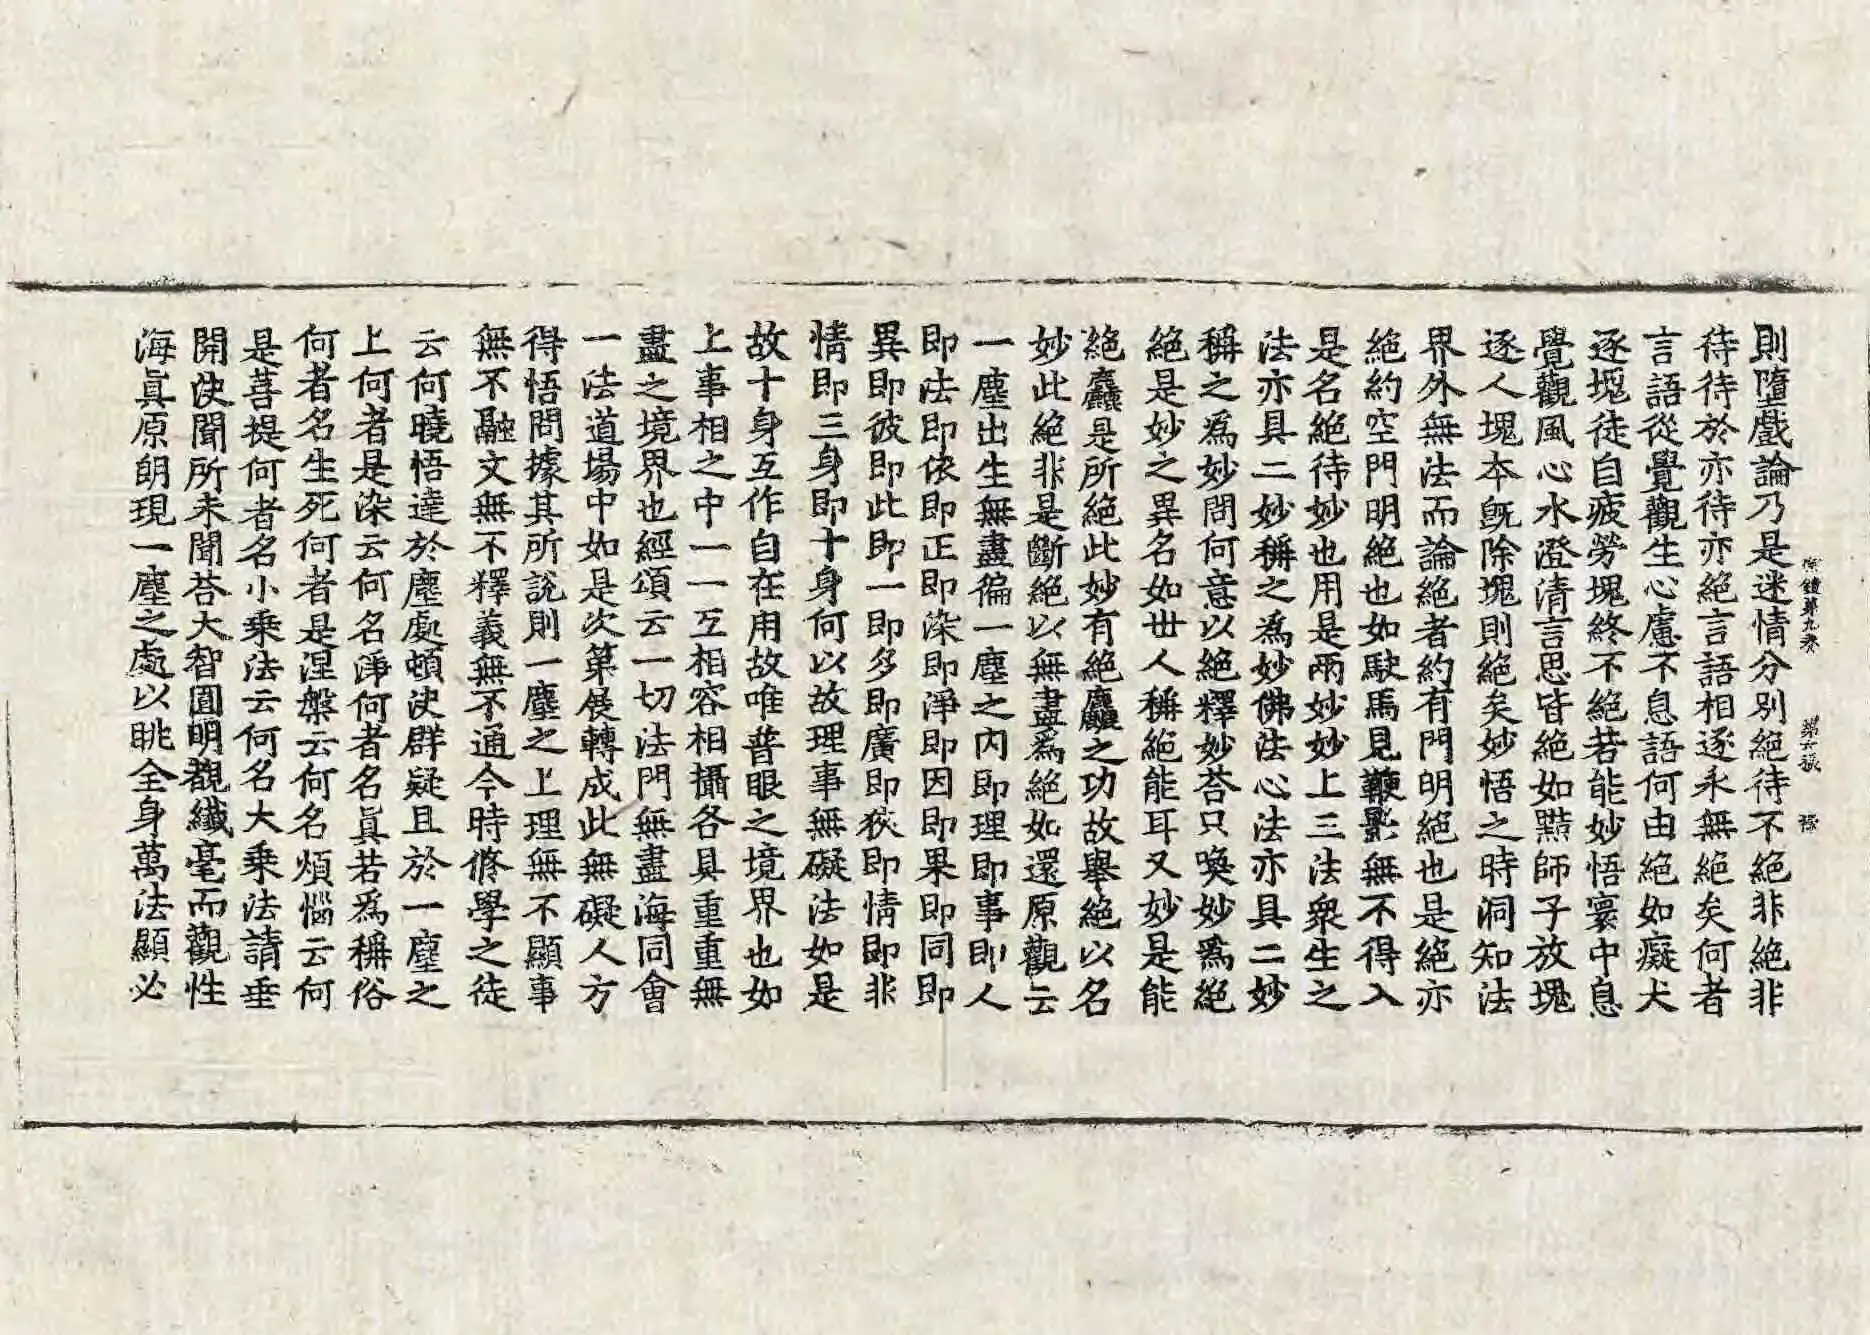 則墮戲論乃是迷情分別絕待不絕非絕非
待待於亦待亦絕言語相逐永無絕矣何者
言語從覺觀生心慮不息語何由絕如癡犬
逐塊徒自疲勞塊終不絕若能妙悟寰中息
覺觀風心水澄清言思皆絕如黠師子放塊
逐人塊本旣除塊則絕矣妙悟之時洞知法
界外無法而論絕者約有門明絕也是絕亦
絕約空門明絕也如駛馬見鞭影無不得入
是名絕待妙也用是兩妙妙上三法衆生之
法亦具二妙稱之爲妙佛法心法亦具二妙
稱之爲妙問何意以絕釋妙荅只喚妙爲絕
絕是妙之異名如丗人稱絕能耳又妙是能
絕麤是所絕此妙有絕麤之功故舉絕以名
妙此絕非是斷絕以無盡爲絕如還原觀云
一塵出生無盡徧一塵之内即理即事即人
即法即依即正即染即淨即因即果即同即
異即彼即此即一即多即廣即狹即情即非
情即三身即十身何以故理事無礙法如是
故十身互作自在用故唯普眼之境界也如
上事相之中一一互相容相攝各具重重無
盡之境界也經頌云一切法門無盡海同會
一法道場中如是次第展轉成此無礙人方
得悟問據其所說則一塵之上理無不顯事
無不融文無不釋義無不通今時修學之徒
云何曉悟達於塵處頓决群疑且於一塵之
上何者是染云何名淨何者名眞若爲稱俗
何者名生死何者是涅槃云何名煩惱云何
是菩提何者名小乘法云何名大乘法請垂
開决聞所未聞荅大智圓明觀纖毫而觀性
海眞原朗現一塵之處以眺全身萬法顯必
鏡第九卷 第六張 祿